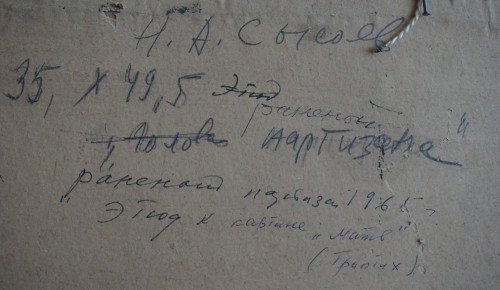 Н. А. Сысоев
35, х 49,5 Этюд
раненый
"Голова партизана"
раненой партизан 1965
"Этюд к картине "Мать"
(Триптих)